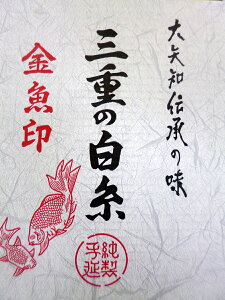 大矢知伝承の味
三重の白糸
金魚印
純製
手延